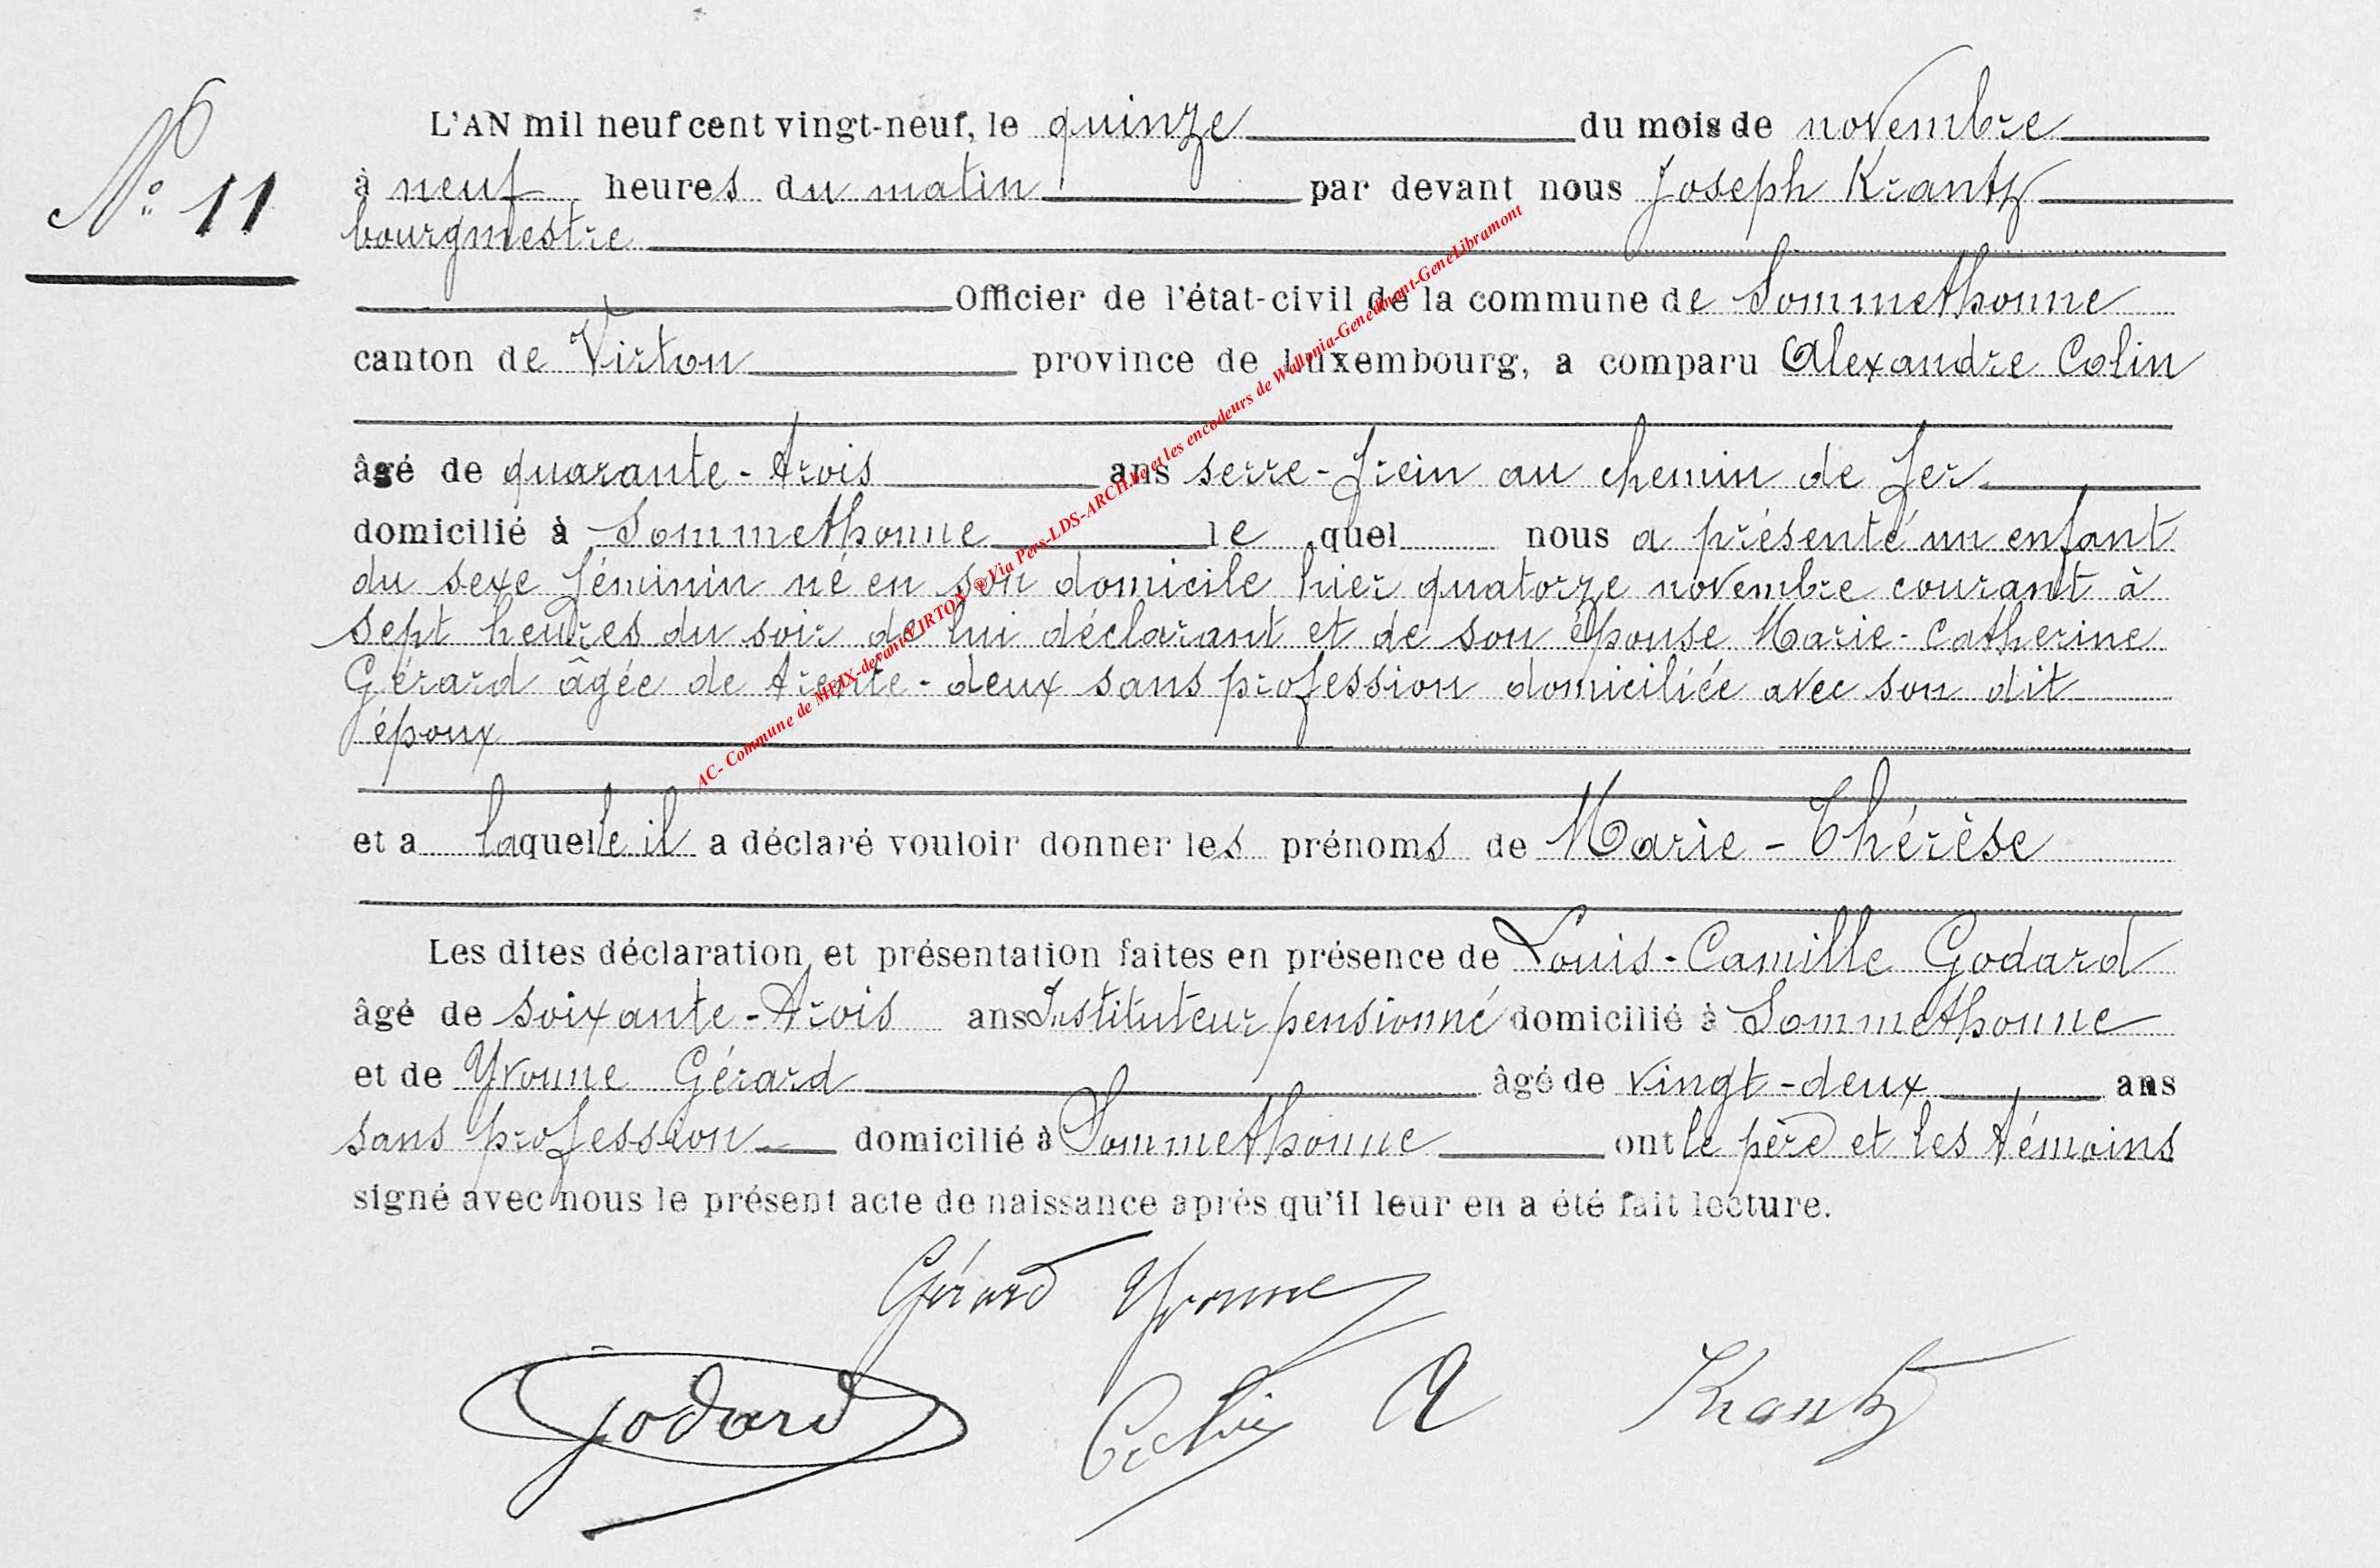 Nº 11
L'AN mil neuf cent vingt-neuf, le quinze du mois de novembre
à neuf heures du matin par devant nous Joseph Krantz
bourgmestre
Officier de l'état-civil de la commune de Sommethonne
canton de Virton province de Luxembourg, a comparu Alexandre Colin
âgé de quarante-trois ans serre-frein au chemin de fer
domicilié à Sommethonne le quel nous a présenté un enfant
du sexe féminin né en son domicile hier quatorze novembre courant à
sept heures du soir de lui déclarant et de son épouse Marie-Catherine
Gérard âgée de trente-deux sans profession domiciliée avec son dit
époux
et a laquelle il a déclaré vouloir donner les prénoms de Marie-Thérèse
Les dites déclaration et présentation faites en présence de Louis-Camille Godard
âgé de soixante-trois ans Instituteur pensionné domicilié à Sommethonne
et de Yvonne Gérard âgé de vingt-deux ans
sans profession domicilié à Sommethonne ont le père et les témoins
signé avec nous le présent acte de naissance après qu'il leur en a été fait lecture.
Gérard Yvonne
Godard Colin A Krantz
AC- Commune de MEIX-devant-VIRTON ® Via Pers-LDS-ARCH.be et les encodeurs de Wallonia-Genedinant-GeneLibramont